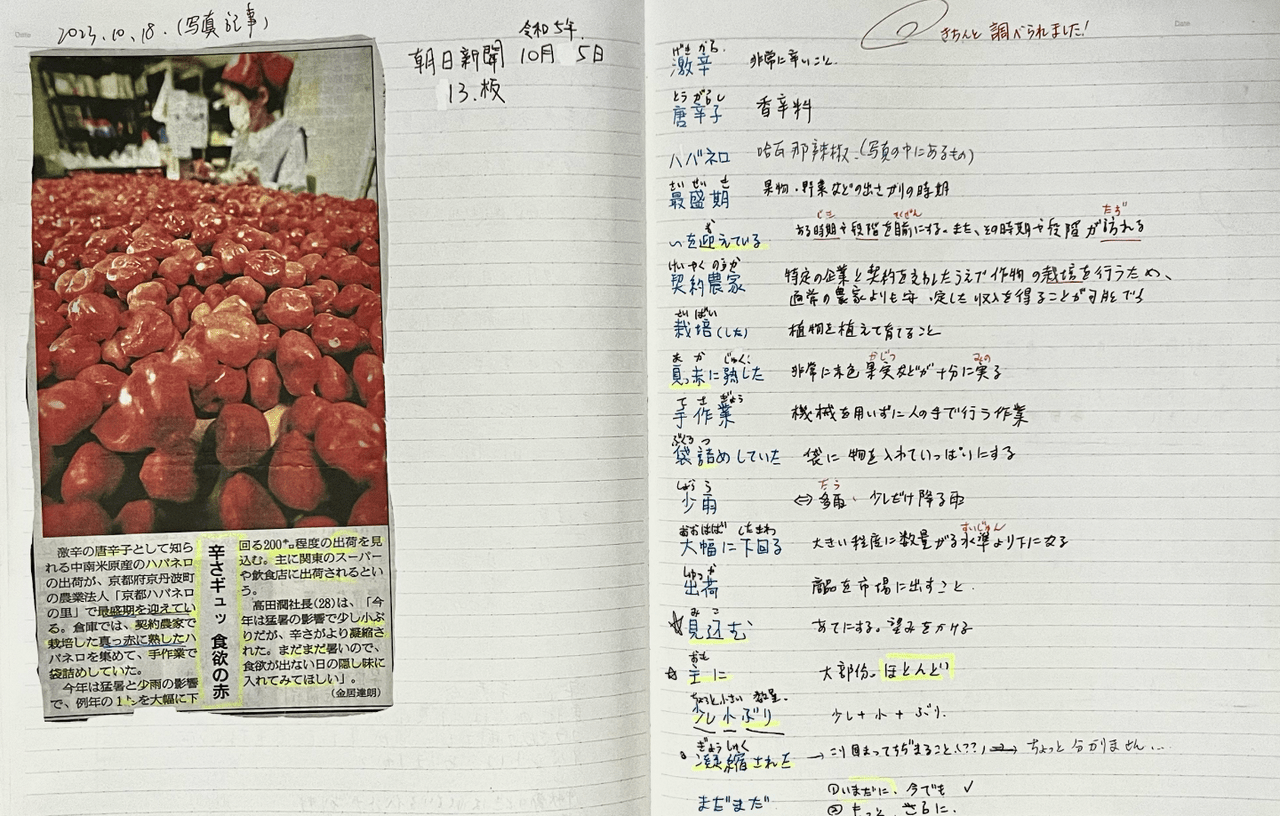 2023.10.18.(写真記事)
令和5年
朝日新聞 10月 5日
13.板
激辛の唐辛子として知ら
れる中南米原産のハバネロ
の出荷が、京都府京丹波町
の農業法人「京都ハバネロ
の里」で最盛期を迎えてい
る。倉庫では、契約農家で
栽培した真っ赤に熟したハ
バネロを集めて、手作業で
袋詰めしていた。
今年は猛暑と少雨の影響
で、例年の1㌧を大幅に下
辛さギュッ 食欲の赤
回る200㌔程度の出荷を見
込む。主に関東のスーパー
や飲食店に出荷されるとい
う。
高田潤社長(28)は、「今
年は猛暑の影響で少し小ぶ
りだが、辛さがより凝縮さ
れた。まだまだ暑いので、
食欲が出ない日の隠し味に
入れてみてほしい」。
(金居達朗)
きちんと調べられました!
げきから
激辛 非常に辛いこと.
とうがらし
唐辛子 香辛料
ハバネロ 哈瓦那辣椒.(写真の中にあるもの)
さいせいき
最盛期 果物・野菜などの出さかりの時期
じき もくぜん たず
いを迎えている ある時期や段階を目前にする。また、その時期や段階が訪れる
けいやくのうか
契約農家 特定の企業と契約をかわしたうえで作物の栽培を行うため、
通常の農家よりも安定した収入を得ることが可能でる
さいばい
栽培(した) 植物を植えて育てること
まっかじゅく かじつ みの
真っ赤に熟した 非常に赤色 果実などが十分に実る
てさぎょう
手作業 機械を用いずに人の手で行う作業
ふくろつ
袋詰めしていた 袋に物を入れていっぱいにする
しょうう たう
少雨 ⇔多雨、少しだけ降る雨
おおはば したまわ すいじゅん
大幅に下回る 大きい程度に数量がる水準より下になる
しゅっか
出荷 商品を市場に出すこと.
みこ
☆見込む あてにする。望みをかける
おも
☆主に 大部份。ほとんど
ちょっと小さい 数量.
少し小ぶり 少し+小+ぶり.
ぎょうしゅく
凝縮された →こり固まってちぢまること(??)→ちょっと分かりません...
まだまだ ①いまだに、今でも ✓
②もっと、さらに.